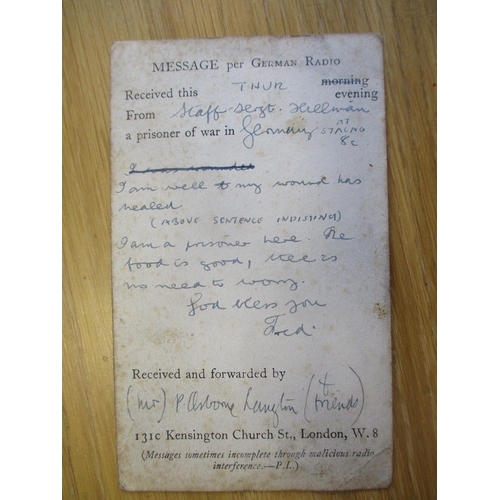 MESSAGE per German Radio
Received this THUR morning
evening
From Staff-Sergt. Hillman
a prisoner of war in Germany AT STALAG 8c
I was wounded
I am well & my wound has
healed
(ABOVE SENTENCE INDISTINCT)
I am a prisoner here. The
food is good, there is
no need to worry.
God bless you
Fred.
Received and forwarded by
(Mr) P Osborne Langton (& friends)
131c Kensington Church St., London, W.8
(Messages sometimes incomplete through malicious radio
interference.—P.L.)